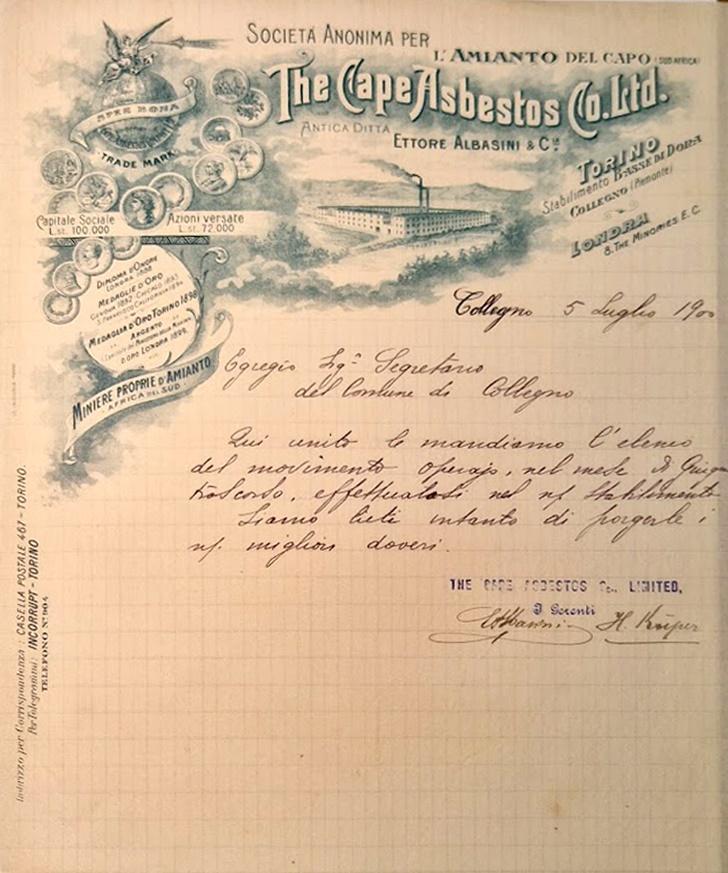 SOCIETÀ ANONIMA PER
L'AMIANTO DEL CAPO (SUD AFRICA)
The Cape Asbestos Co. Ltd.
ANTICA DITTA
ETTORE ALBASINI & Cia.
TORINO
Stabilimento BASSE DI DORA
COLLEGNO (Piemonte)
LONDRA
8. THE MINORIES E. C.
SPES BONA
TRADE MARK
Capitale Sociale
L.st. 100.000
Azioni versate
L.st. 72.000
DIPLOMA D'ONORE
LONDRA 1888
MEDAGLIE D'ORO
GENOVA 1892 - CHICAGO 1893
S. FRANCISCO CALIFORNIA 1894
MEDAGLIA D'ORO TORINO 1898
ARGENTO
D'ORO LONDRA 1899.
MINIERE PROPRIE D'AMIANTO
AFRICA DEL SUD
Collegno 5 Luglio 1900
Egregio Sigr. Segretario
del Comune di Collegno
Qui unito le mandiamo l'elenco
del movimento operajo, nel mese di
trascorso, effettuatosi nel ns/ stabilimento
Siamo lieti intanto di porgerle i
ns/ migliori doveri.
THE CAPE ASBESTOS Co., LIMITED,
I Gerenti
H. Küper
Indirizzo per Corrispondenza: CASELLA POSTALE 467 - TORINO.
Per Telegrammi: INCORRUPT - TORINO
TELEFONO N° 904